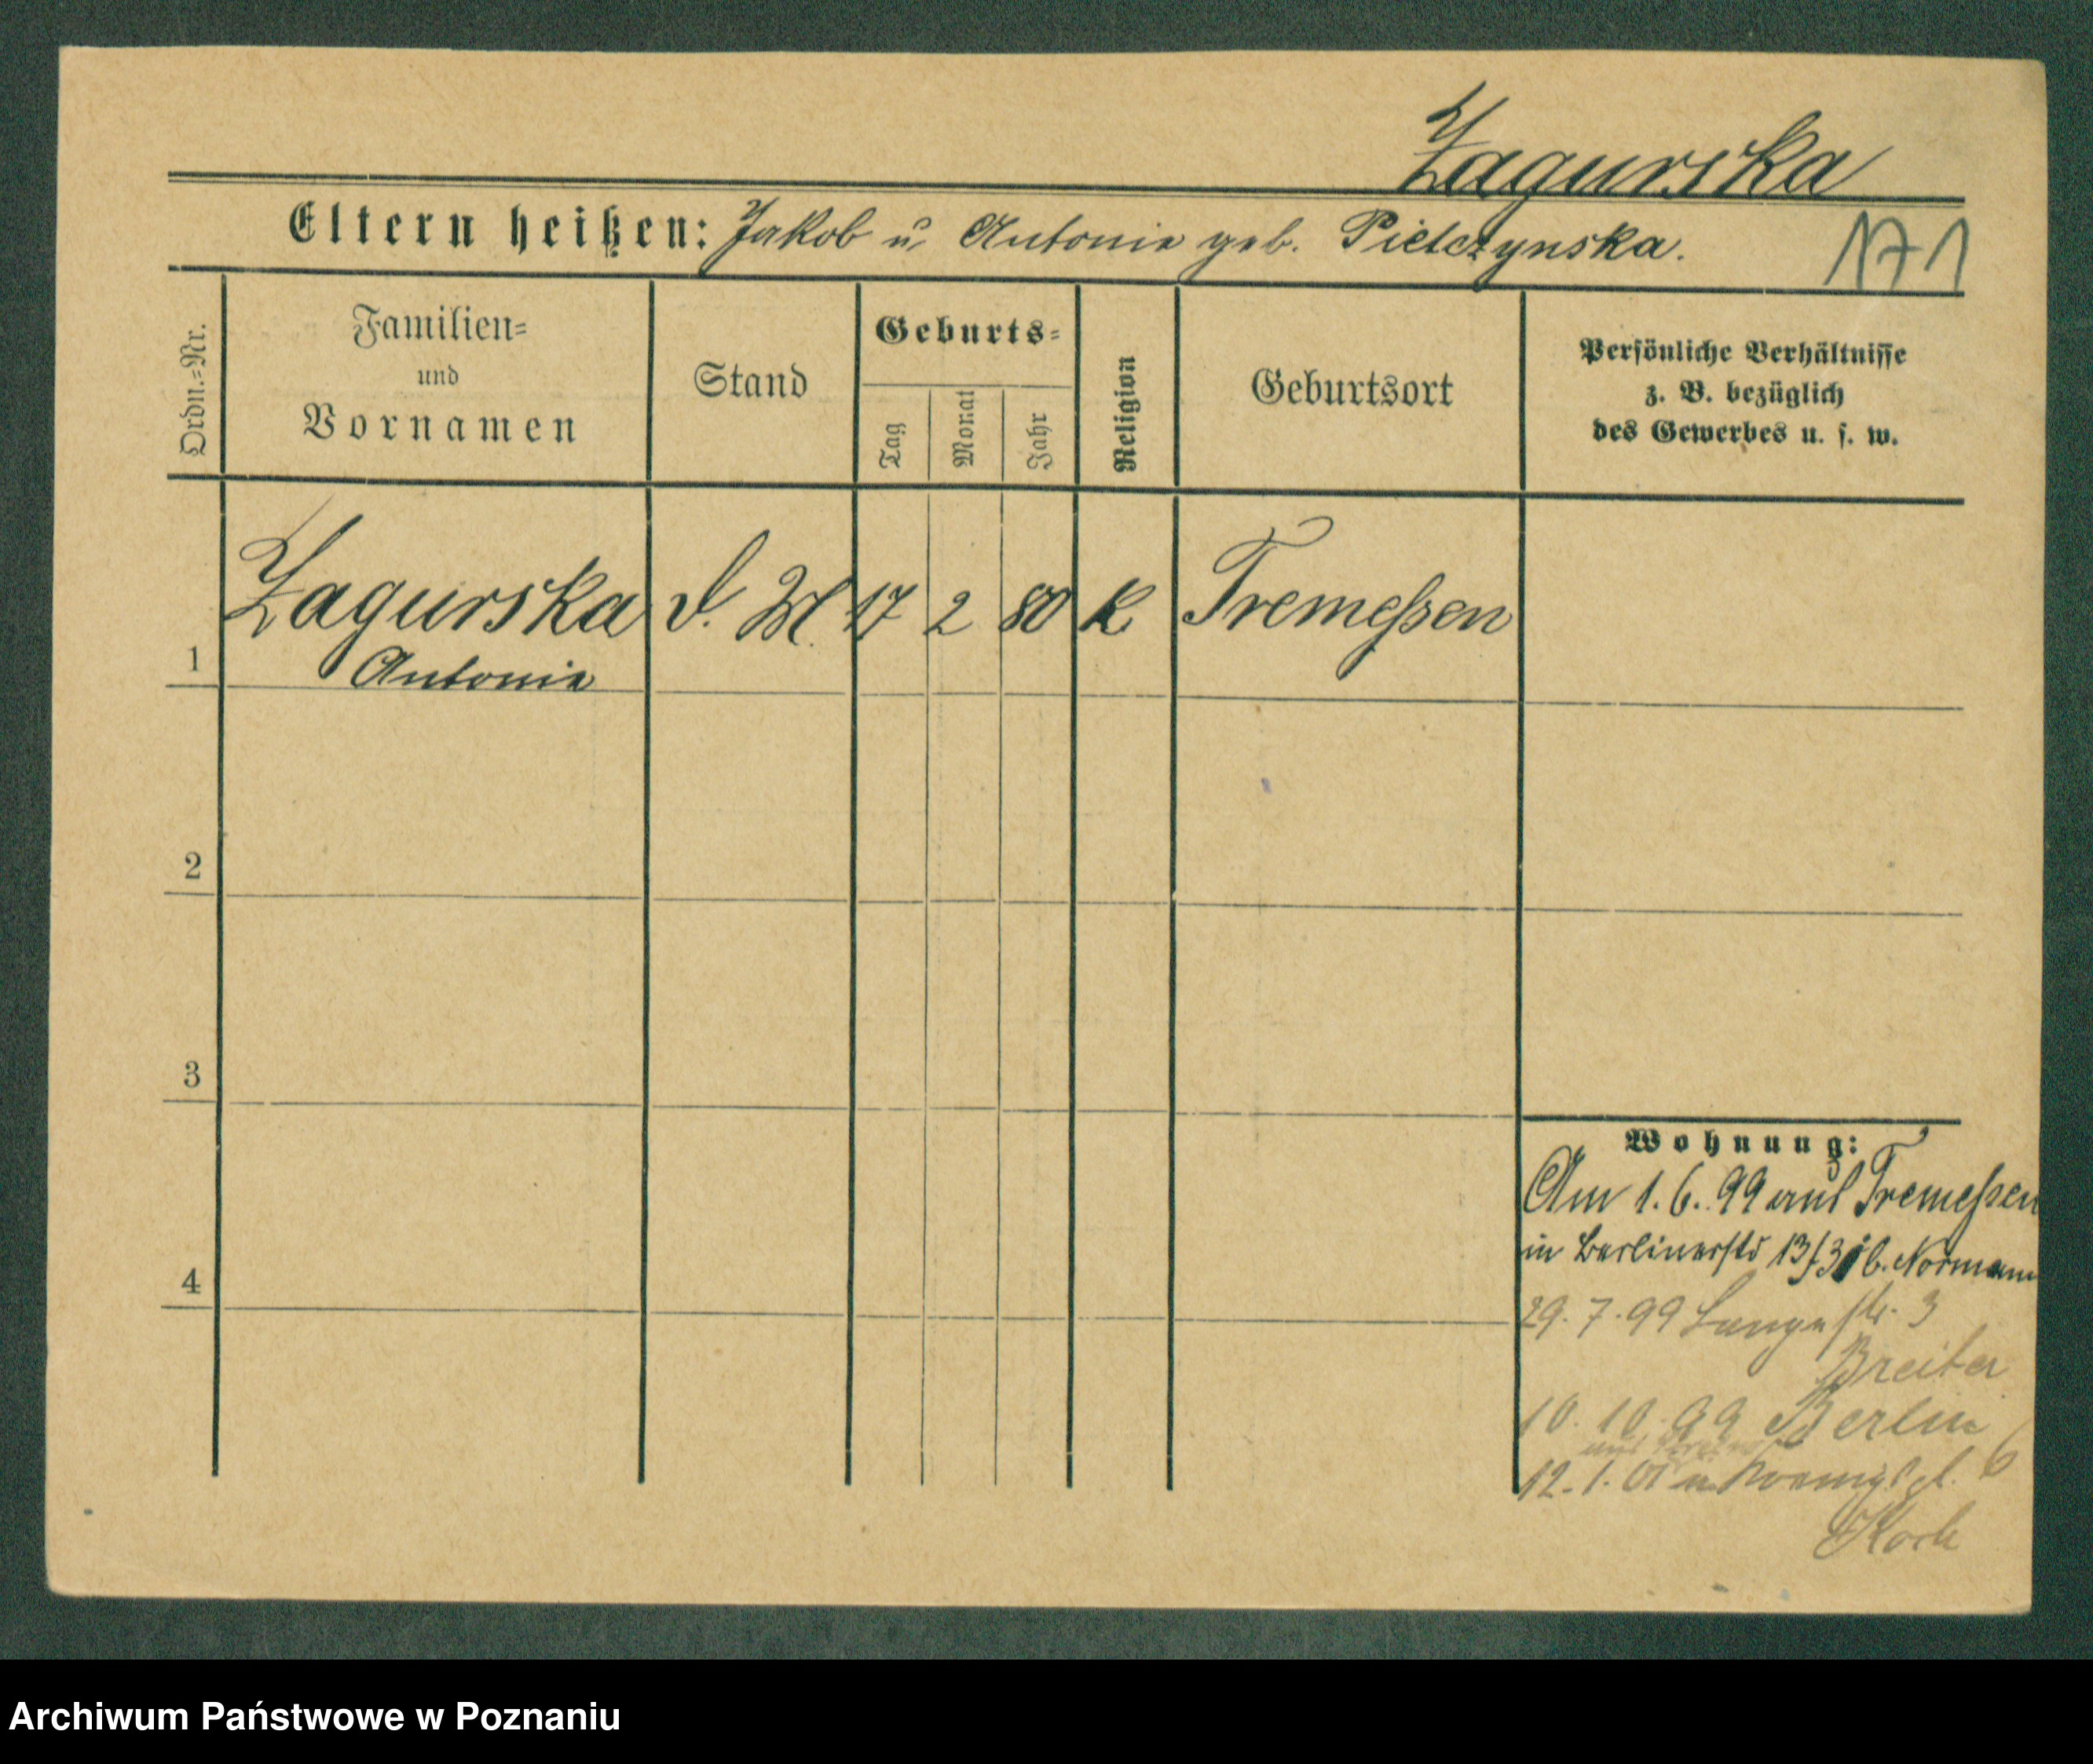 Zagurska
Eltern heißen: Jakob u. Antonie geb. Pietczynska.
171
Ordn.=Nr.
Familien=
und
Vornamen
Stand
Geburts=
Tag
Monat
Jahr
Religion
Geburtsort
Persönliche Verhältnisse
z. B. bezüglich
des Gewerbes u. s. w.
1 Zagurska 17 2 80 K Tremessen
Antonie
2
3
4
Wohnung:
Am 1.6.99 aus Tremessen
in Berlinerstr 13 b. Normann
29.7.99 Lange str. 3
Breiter
10.10.99 Berlin
12.1.01 Koenigspl. 6
Archiwum Państwowe w Poznaniu